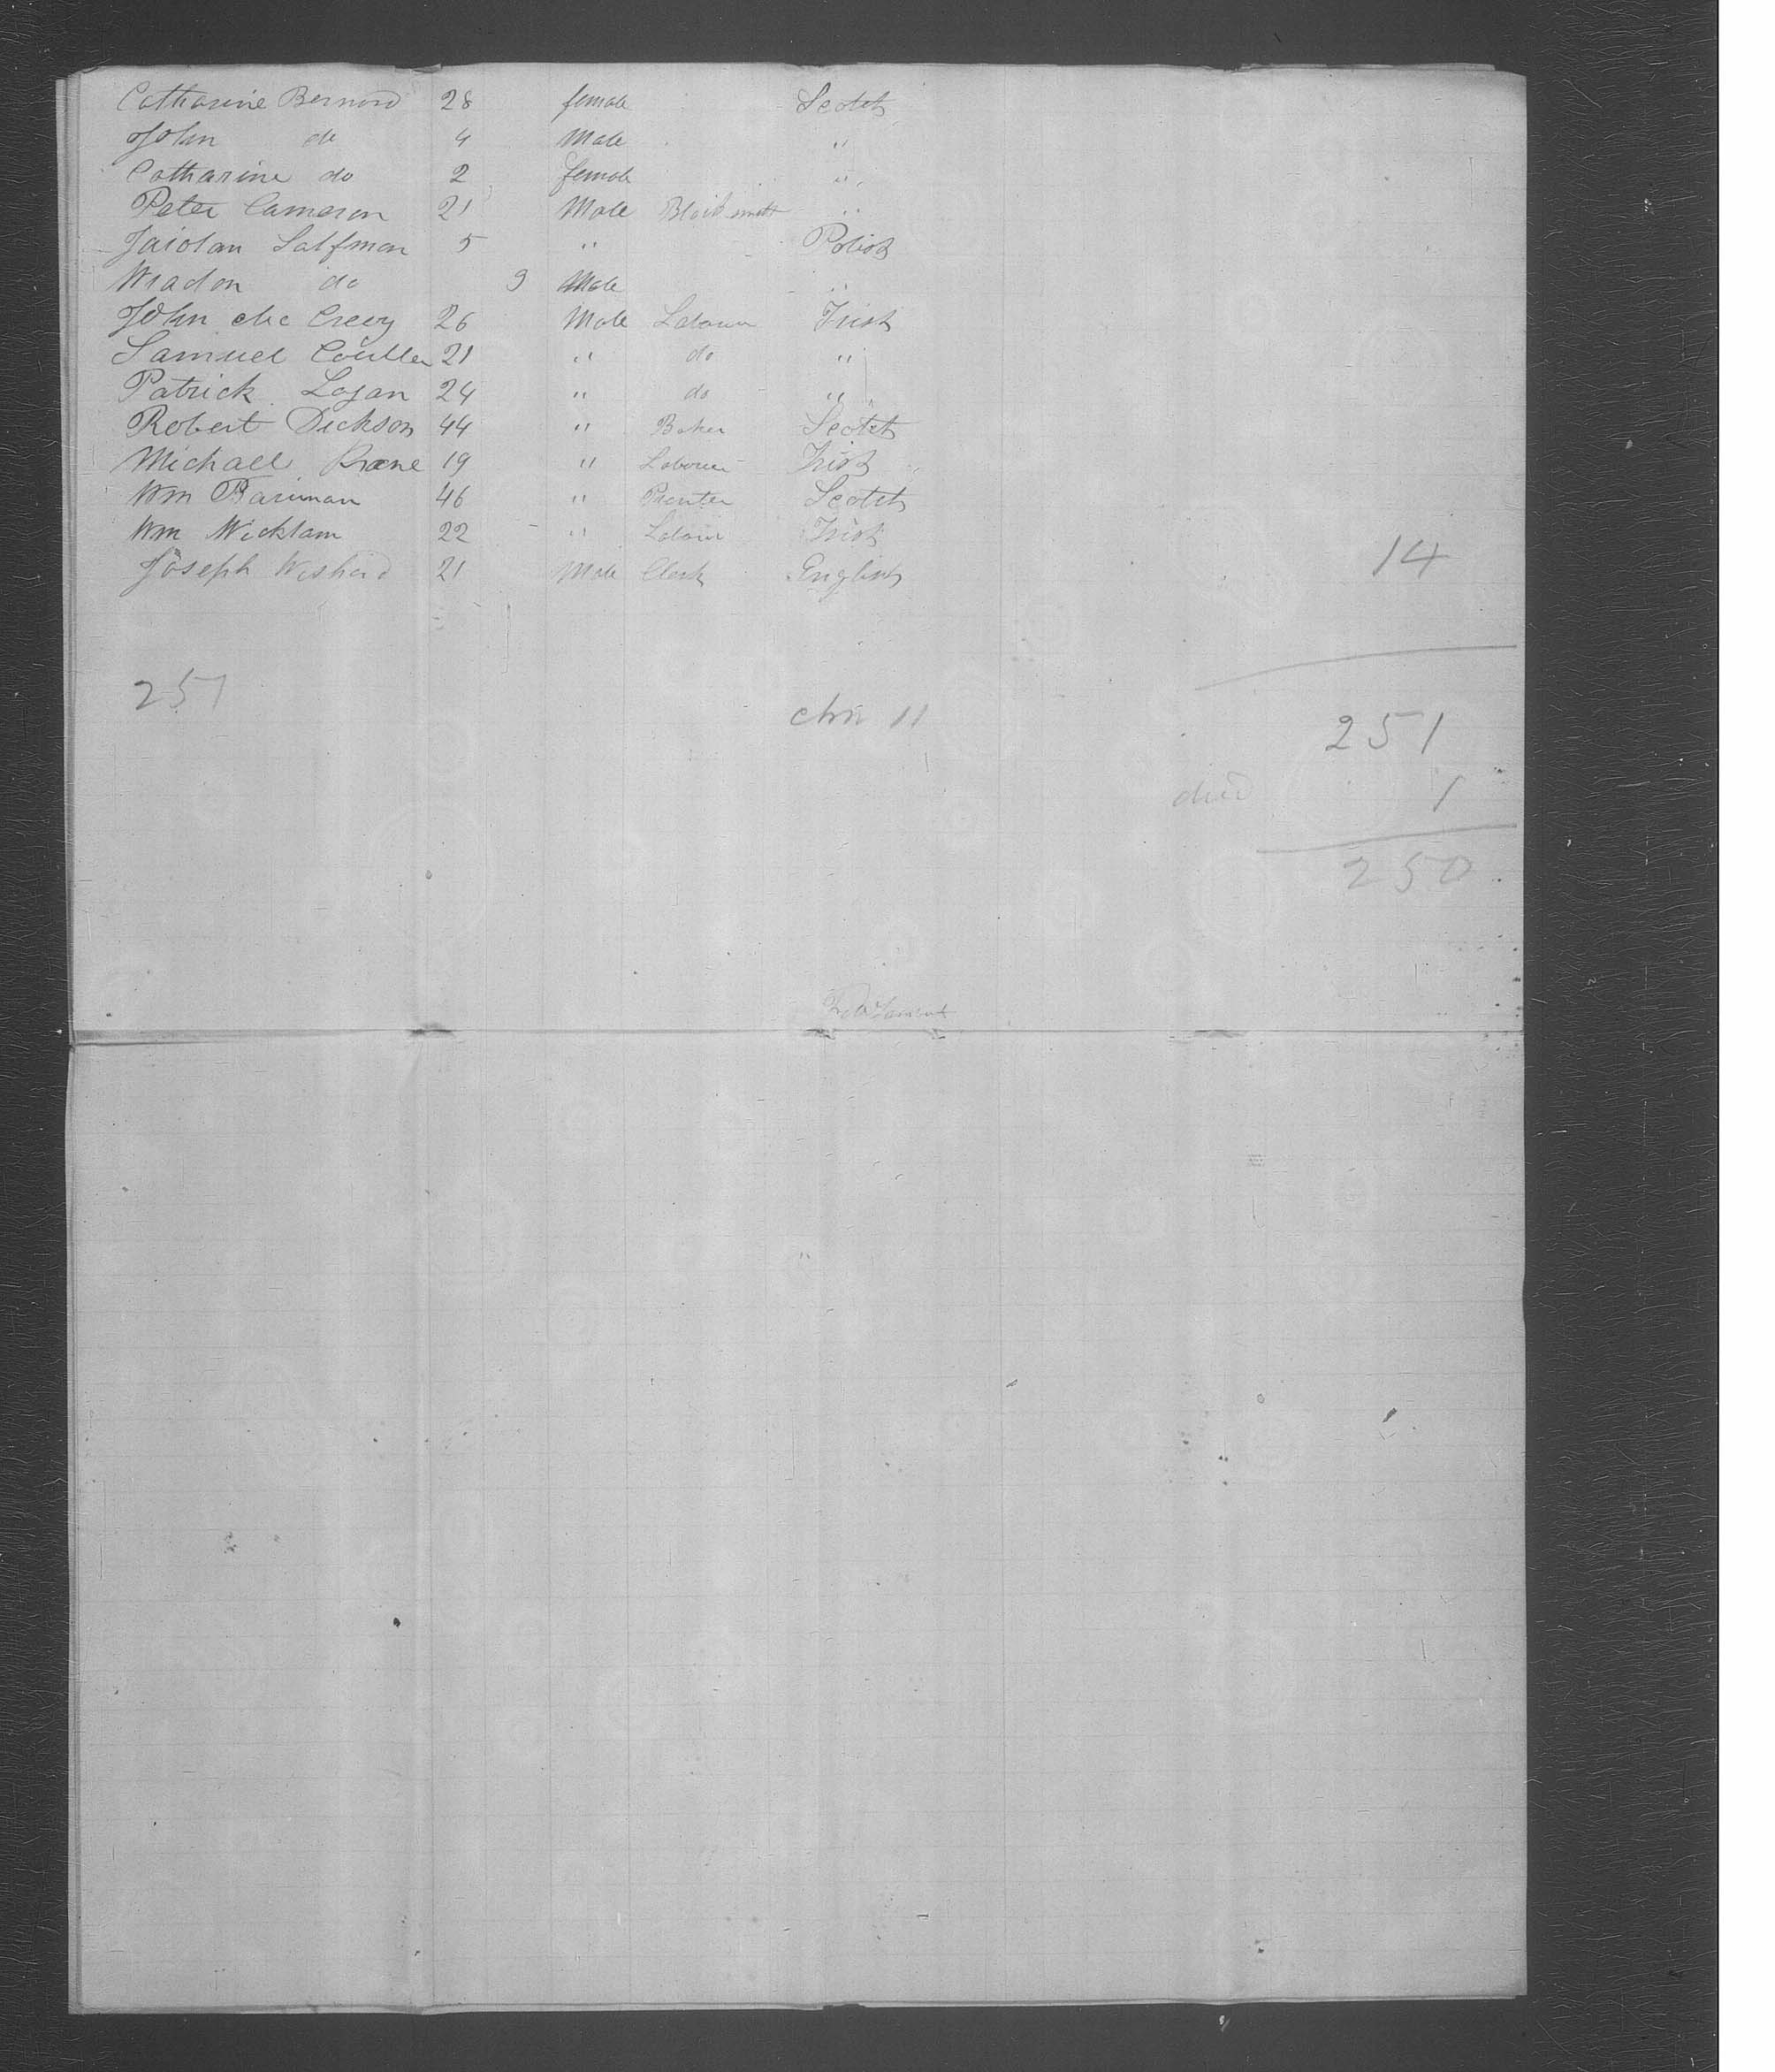 Catharine Bernord 28 female Scotch
John do 4 Male "
Catharine do 2 female "
Peter Cameron 21 Male Blacksmith "
Jaiolan Salfman 5 " Polish
Wradon do 9 Male "
John Mc Creevy 26 Male Labourer Irish
Samuel Coulter 21 " do "
Patrick Logan 24 " do "
Robert Dickson 44 " Baker Scotch
Michael 19 " Labourer Irish
Wm Bariman 46 " Painter Scotch
Wm Wicklam 22 " Labour Irish
Joseph 21 Male Clerk English
14
251
11
251
died 1
250